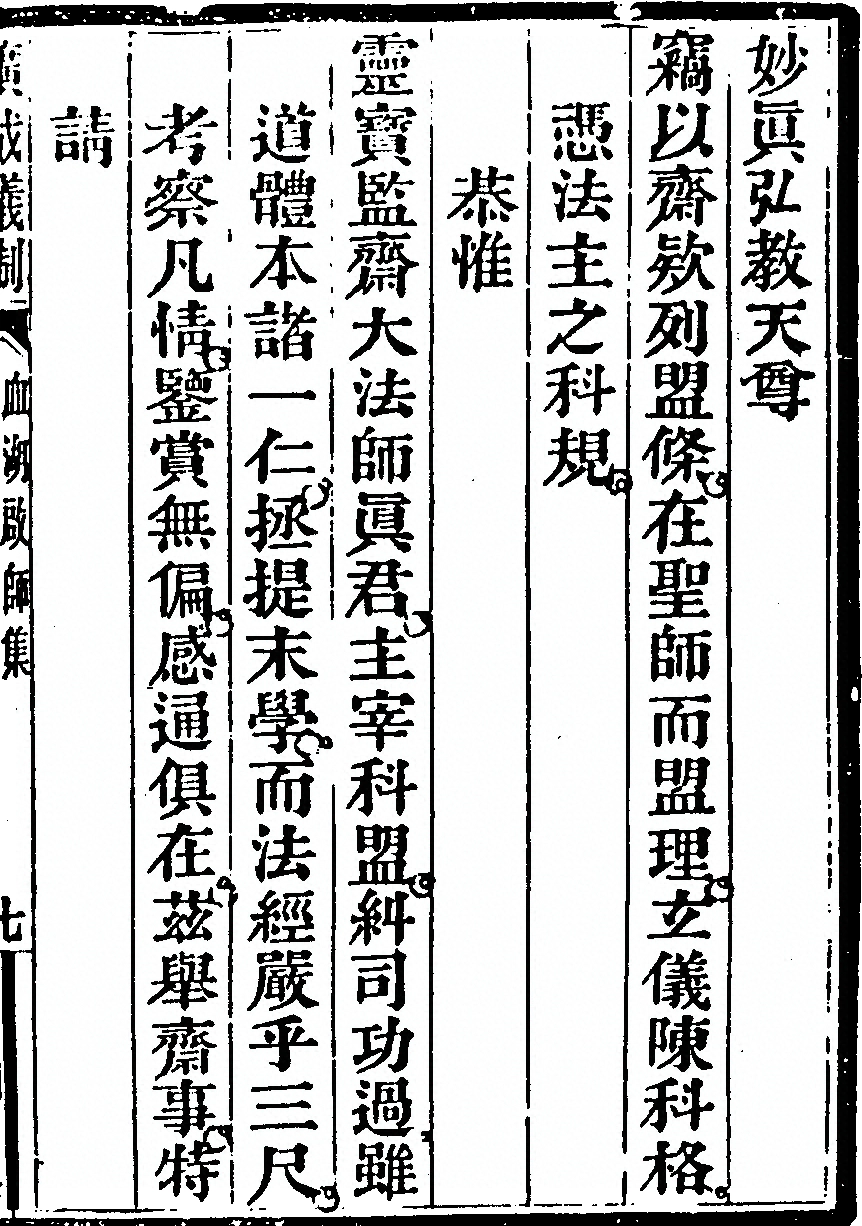 妙眞弘教天尊
竊以齋欵列盟條在聖師而盟理立儀陳科格
憑法主之科規
恭惟
靈寶監齋大法師眞君主宰科盟糾司功過雖
道體本諸一仁拯提末學而法經嚴乎三尺
考察凡情鑒賞無偏感通俱在茲舉齋事特
請
廣成儀制 血湖啟師集 七